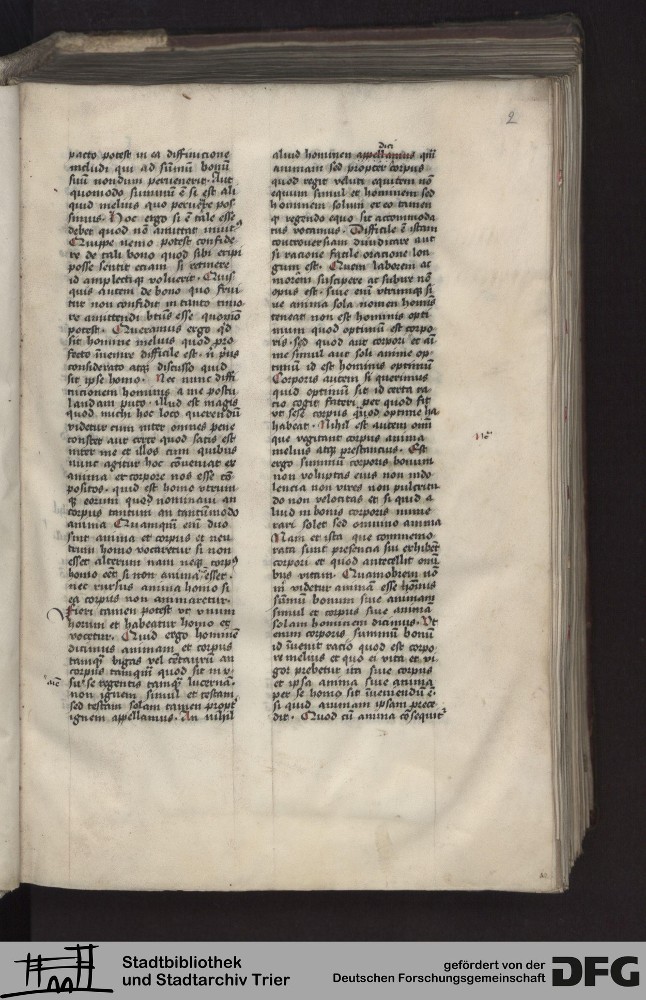 2
pacto potest in ea diffinicione
includi qui ad sūmū bonū
suū nondum pervenerit. Aut
quomodo summū ē si est ali
quid melius quo pervenire pos
simus. Hoc ergo si ē tale esse
debet quod nō amittat invit⁹
Quippe nemo potest confide
re de tali bono quod sibi eripi
posse sentit eciam si retinere
id amplectiqꝫ voluerit. Quis
quis autem de bono quo frui
tur non confidit in tanto timo
re amittendi btūs esse quomō
potest. Queramus ergo qd
sit homine melius quod pro
fecto invenire difficile est. nͥ pus
considerato atqꝫ discusso quid
sit ipse homo. Nec nunc diffi
nicionem hominis a me postu
landam puto. Illud est magis
quod michi hoc loco querendū
videtur cum inter omnes pene
constet aut certe quod satis est
inter me et illos cum quibus
nunc agitur hoc cōveniat ex
anima et corpore nos esse cō
positos. quid est homo utrum
qꝫ eorum quod nominavi an
corpus tantum an tantūmodo
anima Quamqm̄ enī duo
sint anima et corpus et neu
trum homo vocaretur si non
esset alterum nam neqꝫ corp⁹
homo eēt si non anima esset.
nec rursus anima homo si
ea corpus non animaretur.
Fieri tamen potest ut unum
horum et habeatur homo et
vocetur. Quid ergo hominē
dicimus animam et corpus
tamqꝫ bigas vel cētaurū an
corpus tamqm̄ quod sit in u
su se regentis tamqꝫ lucerna
non ignem simul et testam
sed testam solam tamen propt
ignem appellamus. An nihil
dici
aliud hominem appellamus qm̄
animam sed propter corpus
quod regit veluti equitem nō
equum simul et hominem sed
hominem solum et eo tamen
qꝫ regendo equo sit accommoda
tus vocamus. Difficile ē istam
controversiam diiudicare aut
si racione facile oracione lon
gum est. Quem laborem ac
morem suscipere ac subire nō
opus est. sive enī utrumqꝫ si
ve anima sola nomen homīs
teneat non est hominis opti
mum quod optimū est corpo
ris. sed quod aut corpori et ai
me simul aut soli anime op
timū id est hominis optimū
Corporis autem si querimus
quid optimū sit id certa ra
cio cogit fateri per quod fit
ut sese corpus quod optime ha
habeat. Nihil est autem omī
que vegitant corpus anima
melius atqꝫ prestancius. Est
ergo summū corporis bonum
non voluptas eius non indo
lencia non vires non pulcritu
do non velocitas et si quid a
liud in bonis corporis nume
rari solet sed omnino anima
Nam et ista que commemo
rata sunt presencia sui exhibet
corpori et quod antecellit omī
bus vitam. Quamobrem nō
mͥ videtur anima esse homīs
sūmū bonum sive animam
simul et corpus sive anima
solam hominem dicimus. Ut
enim corporis summū bonū
id iuvenit racio quod est corpo
re melius et quo ei vita et vi
gor prebetur ita sive corpus
et ipsa anima sive anima
per se homo sit inveniendū ē.
si quid animam ipsam prece
dit. Quod cū anima cōsequit²
Stadtbibliothek
und Stadtarchiv Trier
gefördert von der
Deutschen Forschungsgemeinschaft
DFG